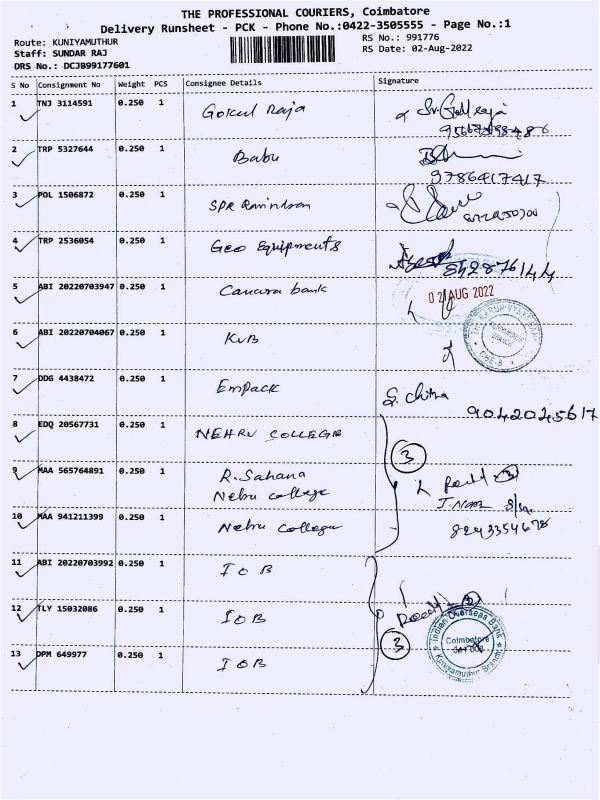 THE PROFESSIONAL COURIERS, Coimbatore
Delivery Runsheet - PCK - Phone No.:0422-3505555 - Page No.:1
Route: KUNIYAMUTHUR
RS No.: 991776
Staff: SUNDAR RAJ
RS Date: 02-Aug-2022
DRS No.: DCJB99177601
S No Consignment No Weight PCS Consignee Details Signature
1 TNJ 3114591 0.250 1 Gokul Raja
2 TRP 5327644 0.250 1 Babu
9786417417
3 POL 1506872 0.250 1 SPR
4 TRP 2536054 0.250 1 Geo Equipments
5 ABI 20220703947 0.250 1 Canara bank
02 AUG 2022
6 ABI 20220704067 0.250 1 KVB
7 DDG 4438472 0.250 1 Empack S. Chitra
9042045617
8 EDQ 20567731 0.250 1 NEHRU COLLEGE
3
9 MAA 565764891 0.250 1 R. Sahana
Nehru college
10 MAA 941211399 0.250 1 Nehru College
8243354678
11 ABI 20220703992 0.250 1 IOB
12 TLY 15032086 0.250 1 IOB
Indian Overseas Bank
Coimbatore
Kuniyamuthur Branch
3
13 DPM 649977 0.250 1 IOB